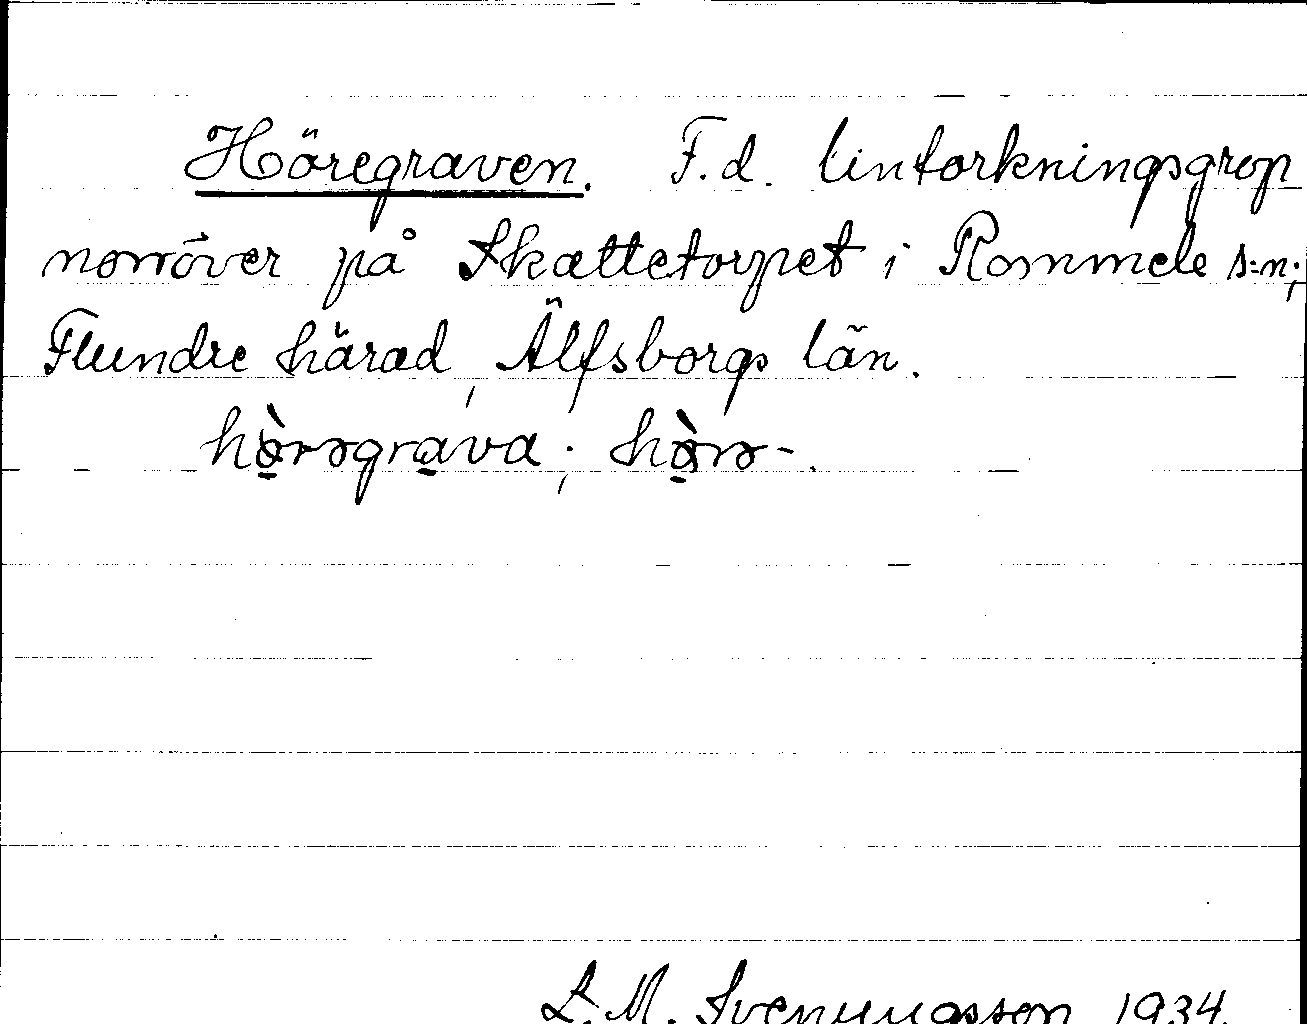 Höregraven. F. d. lintorkningsgrop
norröver på Skattetorpet i Rommele s:n;
Flundre härad, Älfsborgs län.
hö̀rəgrava; hö̀rə-.
L. M. Svenungsson 1934.